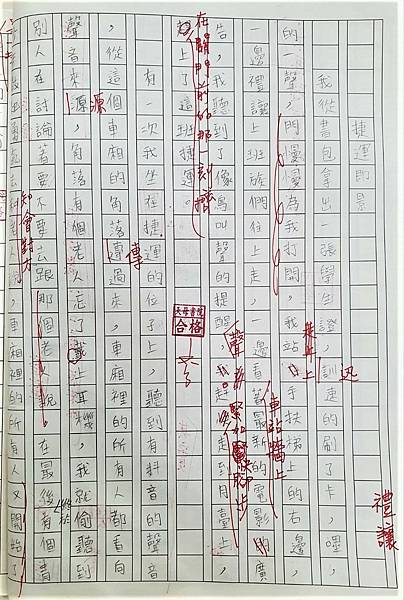 捷運即景
我從書包拿出一張學生證，訓速的刷了卡，嗶
的一聲，門慢慢為我打開，我站手扶梯上的右邊，
一邊禮讓上班族們往上走，一邊看著最新的電影的廣
告，我聽到了像鳥叫聲的提醒，趕走到月臺上，
上了這班捷運。
有一次我坐在捷運的位子上，聽到有抖音的聲音
，從這個車廂的角落過走，車廂裡的所有人都看向
聲音來源，角落有個老人忘了戴上耳機，我就偷聽到
別人在討論著要不要去跟那個老人說，在最後有個
，車廂裡的所有人又開始了
禮讓
迅
車站牆上
在關門前的那刻擠
合格
傳
源
知會對方